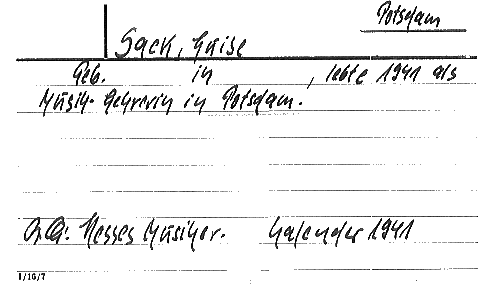 Potsdam
Sack, Luise
Geb. in , lebte 1941 als
Musik-Lehrerin in Potsdam.
Hesses Musiker- Kalender 1941
1/16/7